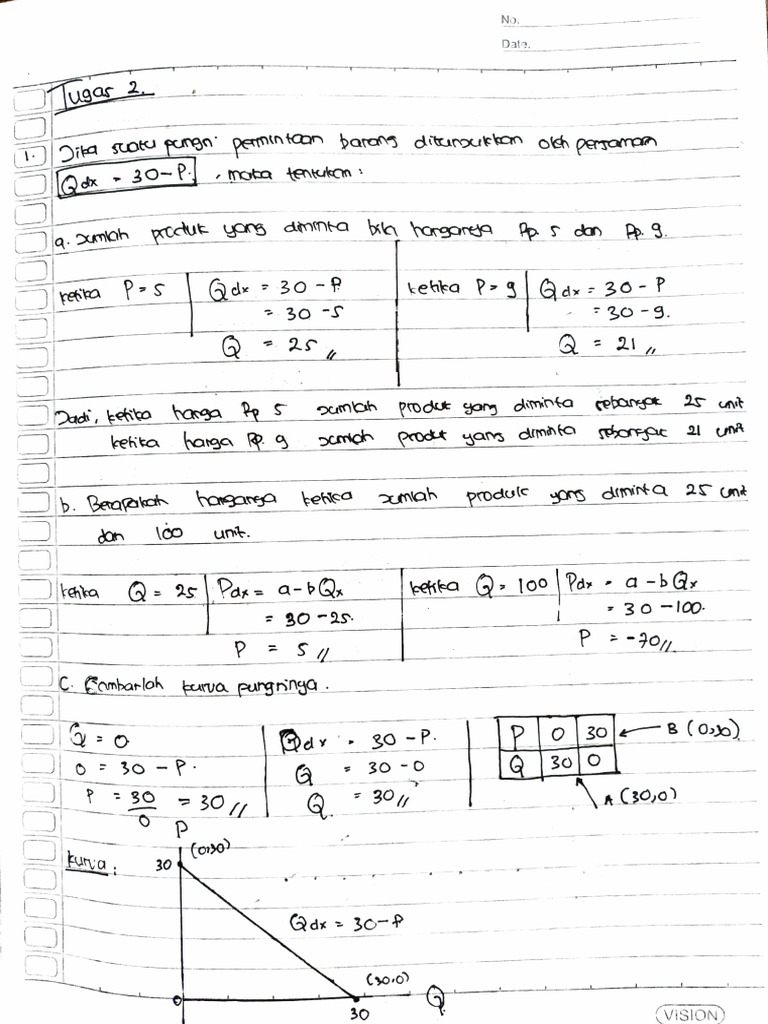 No.
Date.
Tugas 2.
1. Jika suatu pungsi permintaan barang ditunjukkan oleh persamaan
Qdx = 30 - P. , maka tentukan :
a. Jumlah produk yang diminta bila harganya Rp. 5 dan Rp. 9.
ketika P = 5 | Qdx = 30 - P. | ketika P = 9 | Qdx = 30 - P
= 30 - 5 = 30 - 9.
Q = 25 // Q = 21 //
Jadi, ketika harga Rp 5 jumlah produk yang diminta sebanyak 25 unit
ketika harga Rp. 9 jumlah produk yang diminta sebanyak 21 unit
b. Berapakah harganya ketika jumlah produk yang diminta 25 unit
dan 100 unit.
ketika Q = 25 | Pdx = a - bQx | ketika Q = 100 | Pdx = a - bQx
= 30 - 25. = 30 - 100.
P = 5 // P = -70 //
C. Gambarlah kurva pungsinya.
Q = 0 | Qdx = 30 - P. | P 0 30 ← B (0,30)
0 = 30 - P. | Q = 30 - 0 | Q 30 0
P = 30/0 = 30 // | Q = 30 // A (30,0)
P
Kurva : 30 (0,30)
Qdx = 30 - P
(30,0)
0 30 Q
VISION